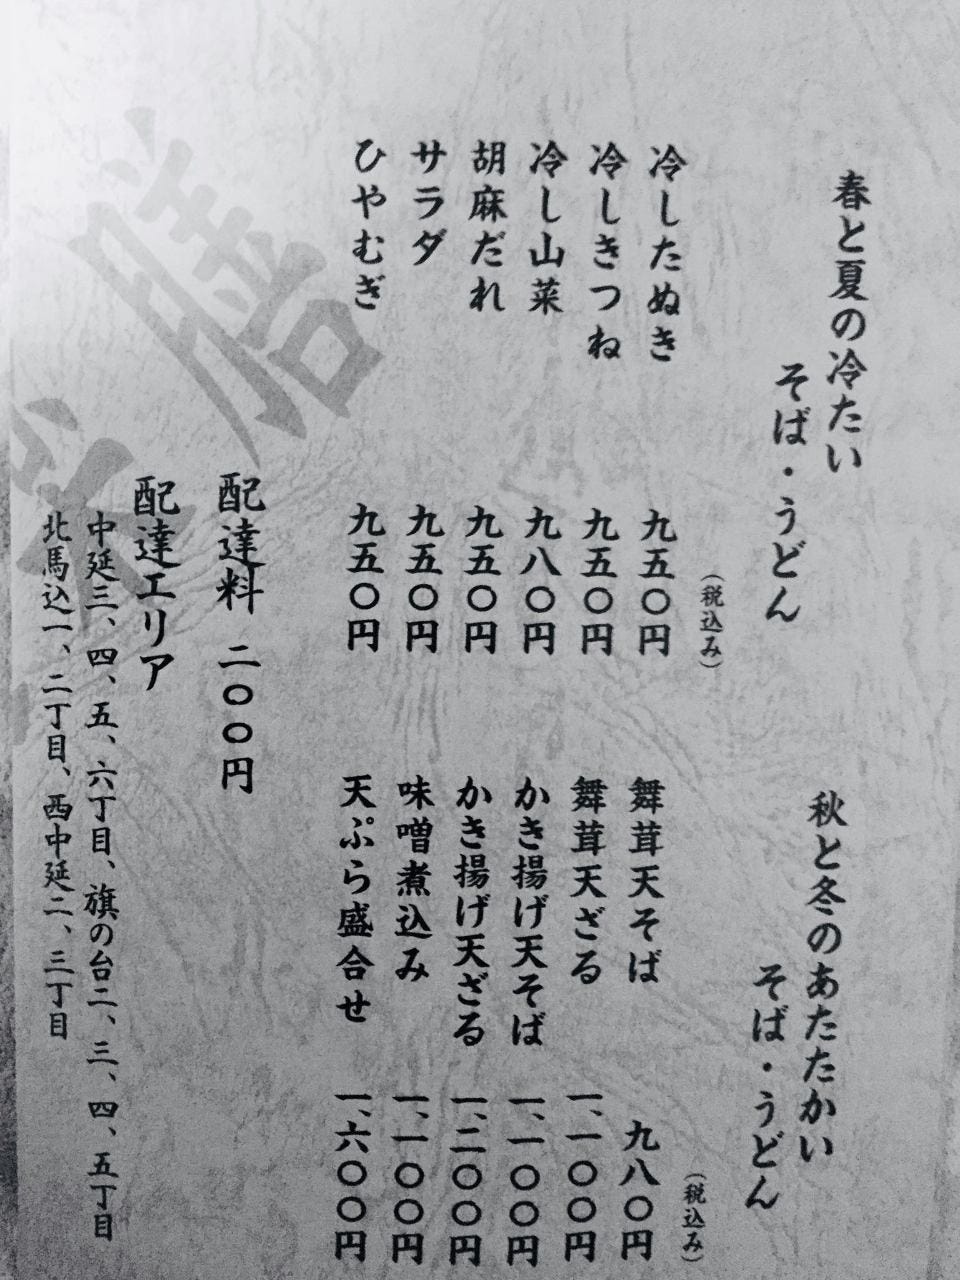 春と夏の冷たい
そば・うどん
（税込み）
冷したぬき 九五〇円
冷しきつね 九五〇円
冷し山菜 九八〇円
胡麻だれ 九五〇円
サラダ 九五〇円
ひやむぎ 九五〇円
秋と冬のあたたかい
そば・うどん
（税込み）
舞茸天そば 九八〇円
舞茸天ざる 一、一〇〇円
かき揚げ天そば 一、一〇〇円
かき揚げ天ざる 一、二〇〇円
味噌煮込み 一、一〇〇円
天ぷら盛合せ 一、六〇〇円
配達料 二〇〇円
配達エリア
中延三、四、五、六丁目、旗の台二、三、四、五丁目
北馬込一、二丁目、西中延二、三丁目